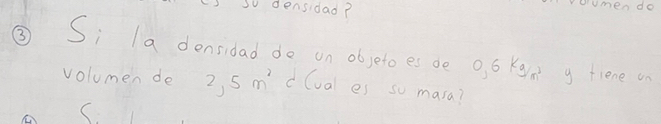 su densidad?
volumen de
③ Si la densidad de un objeto es de 0,6 Kg/m³ y tiene un
volumen de 2,5 m³ ¿Cual es su masa?